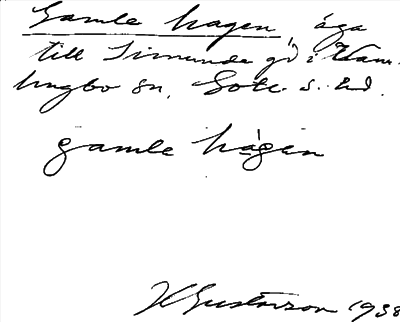 Gamle hagen, äga
till Simunde gd i Kam-
lingbo sn, Gotl. s. hd.
gamle hagen
H Gustavson 1938